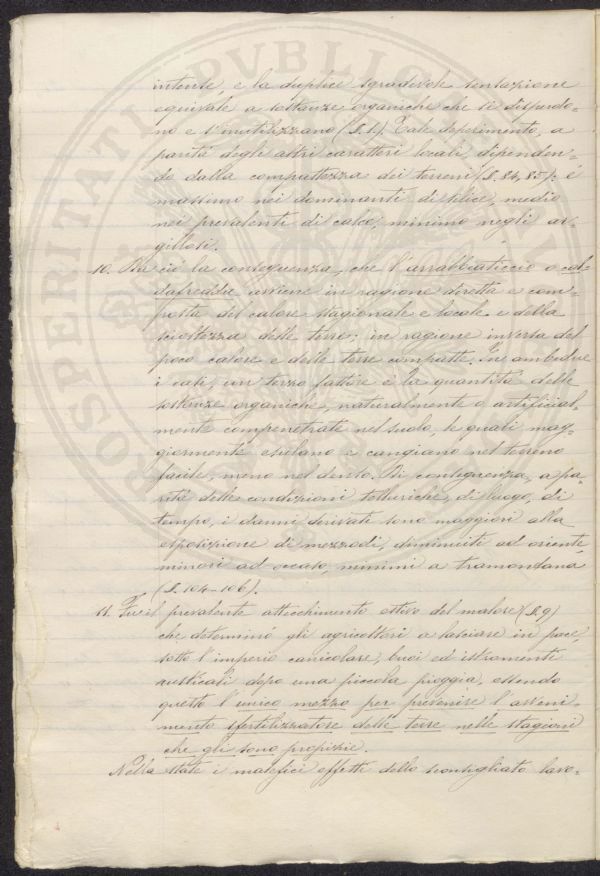 intense, e la duplice sgradevole sensazione
equivale a sostanze organiche che si disperdo-
no e s'inutilizzano (§. 1). Tale deperimento, a
parità degli altri caratteri locali, dipenden-
do dalla compattezza dei terreni (§. 84, 85), è
massimo nei dominanti di silice, medio
nei prevalenti di calce, minimo negli ar-
gillosi.
10. Da ciò la conseguenza, che l'arrabbiaticcio o cal-
dafredda avviene in ragione diretta e com-
posta del calore stagionale e locale e della
scioltezza delle terre; in ragione inversa del
poco calore e delle terre compatte. In ambedue
i casi, un terzo fattore è la quantità delle
sostanze organiche, naturalmente o artificial-
mente compenetrate nel suolo, le quali mag-
giormente esulano e cangiano nel terreno
facile, meno nel denso. Di conseguenza, a pa-
rità delle condizioni telluriche, di luogo, di
tempo, i danni derivati sono maggiori alla
esposizione di mezzodì, diminuite ad oriente,
minori ad occaso, minimi a tramontana
(§. 104-106).
11. Fu il prevalente attecchimento estivo del malore (§. 9)
che determinò gli agricoltori a lasciare in pace,
sotto l'imperio canicolare, buoi ed istromenti
rusticali dopo una piccola pioggia, essendo
questo l'unico mezzo per prevenire l'avveni-
mento sfertilizzatore delle terre nelle stagioni
che gli sono propizie.
Nella state i malefici effetti dello sconsigliato lavo-
PROSPERITATI PVBLICAE